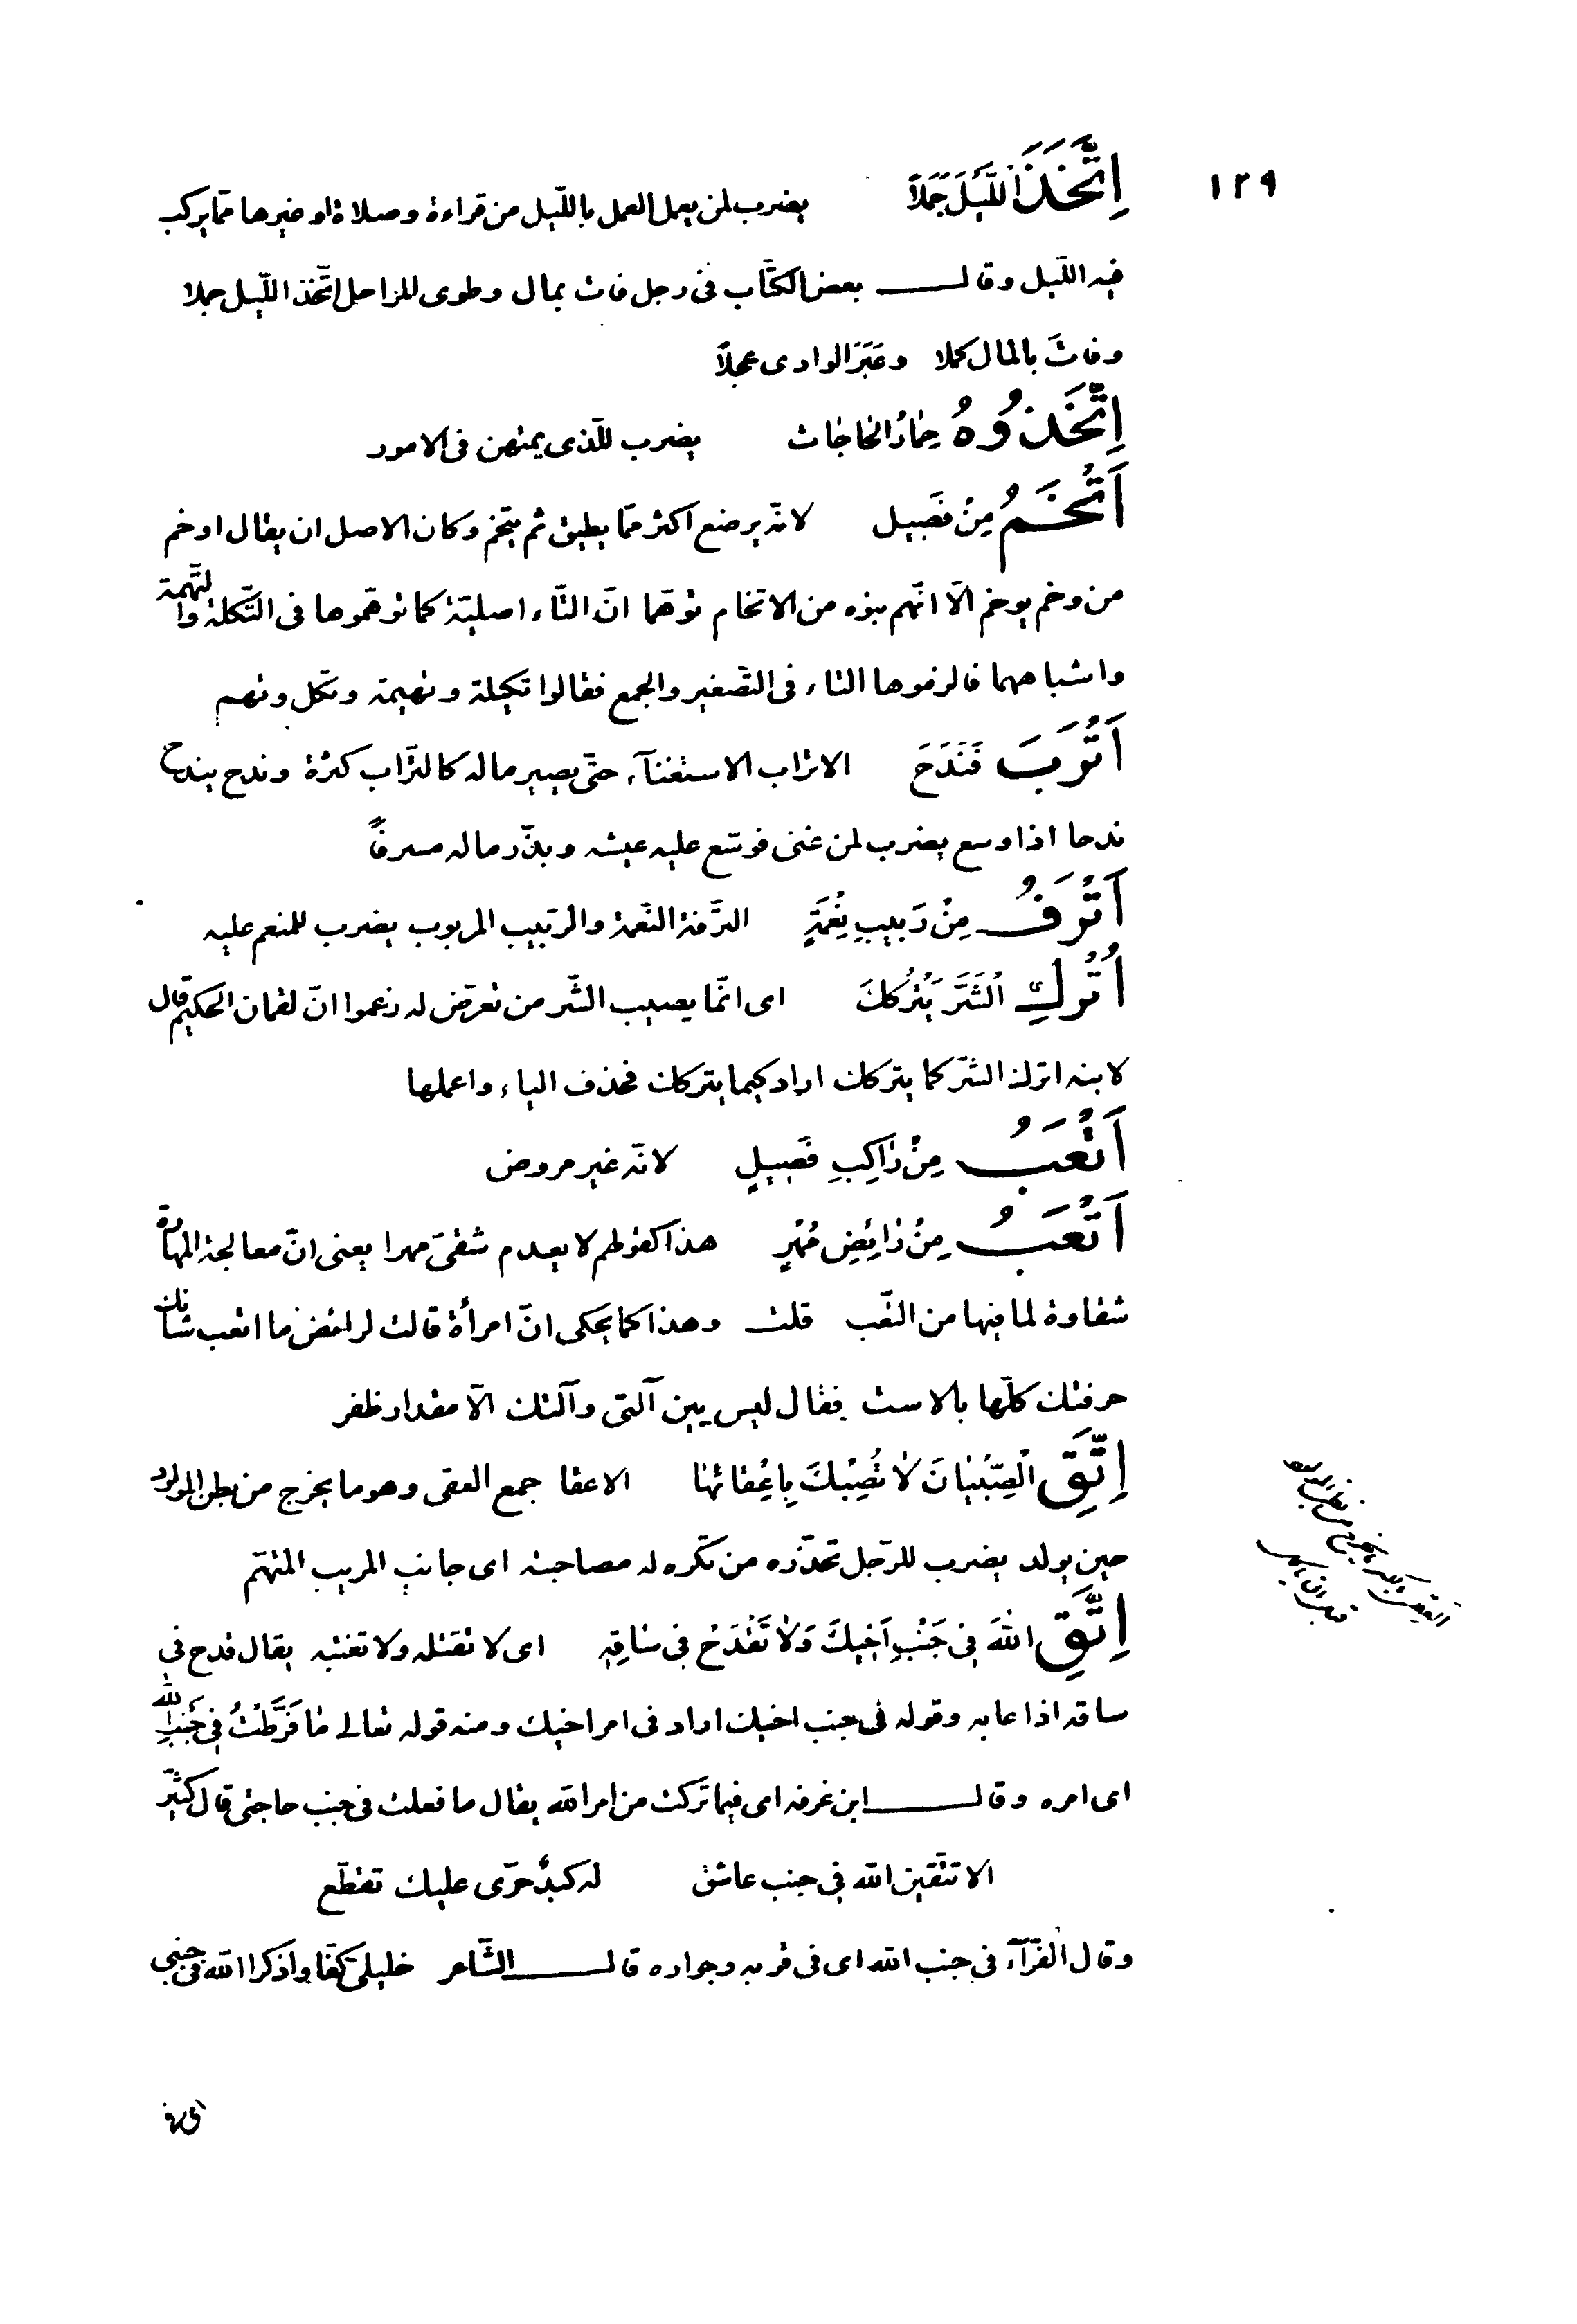 ١٢٩
اِتَّخَذَ اللَّيْلَ جَمَلاً يضرب لمن يعمل العمل باللّيل من قراءة وصلاة او غيرها ممّا يركب
فيه اللّيل وقال بعض الكتّاب فى رجل فات بمال وطوى المراحل اتّخذ اللّيل جملا
وفاتَ بالمال كملا وعَبَرَ الوادى عجلاً
اِتَّخَذُوهُ حِمَارُ الْحَاجَات يضرب للّذى يمتهن فى الامور
اَتْخَمُ مِنْ فَصِيل لانّه يرضع اكثر ممّا يطيق ثم يتّخم وكان الاصل ان يقال اوخم
من وخم يوخم الّا انّهم بنوه من الاتخام توهّما انّ التّاء اصليّة كما توهّموها فى التّكلة والتّهمة
واشباههما فالزموها التاء فى التّصغير والجمع فقالوا تكيلة وتهيمة وتكل وتهم
اَتْرَبَ فَنَدَحَ الاتراب الاستغنآء حتّى يصير ماله كالتّراب كثرة وندح يندح
ندحا اذا وسع يضرب لمن غنى فوسّع عليه عيشه وبذّر ماله مسرفاً
اَتْرَفُ مِنْ رَبِيبِ نِعْمَةٍ الترَّفة النّعمة والرّبيب المربوب يضرب للمنعم عليه
اُتْرُكِ الْشَرَّ يَتْرُكْكَ اى انّما يصيب الشّر من تعرّض له زعموا انّ لقمان الحكيم قال
لابنه اترك الشّر كما يتركك اراد كيما يتركك فحذف الياء واعملها
اَتْعَبُ مِنْ رَاكِبِ فَصِيلٍ لانّه غير مروض
اَتْعَبُ مِنْ رَائِضِ مُهْرٍ هذا كقولهم لا يعدم شقىّ مهرا يعنى انّ معالجة المهارة
شقاوة لما فيها من التّعب قلت وهذا كما يحكى انّ امرأة قالت لرائض ما اتعب شانك
حرفتك كلّها بالاست فقال ليس بين آلتى وآلتك الّا مقدار ظفر
اِتَّقِ الْصِّبْيَانَ لَا تُصِبْكَ بِاَعْقَائِهَا الاعقا جمع العقى وهو ما يخرج من بطن المولود
حين يولد يضرب للرّجل تحذّره من تكره له مصاحبته اى جانب المريب المتهّم
اِتَّقِ اللهَ فِى جَنْبِ اَخِيكَ وَلَا تَقْدَحْ فِى سَاقِهِ اى لا تقتله ولا تغتبه يقال قدح فى
ساقه اذا عابه وقوله فى جنب اخيك اراد فى امر اخيك ومنه قوله تعالى مَا فَرَّطْتُ فِى جَنْبِ اللهِ
اى امره وقال ابن عرفه اى فيما تركت من امر الله يقال ما فعلت فى جنب حاجتى قال كثيّر
الا تتّقين الله فى جنب عاشق له كبدٌ حرّى عليك تقطّع
وقال الفرّآء فى جنب الله اى فى قربه وجواره قال الشّاعر خليلىّ كفّا واذكرا الله فى جنبى